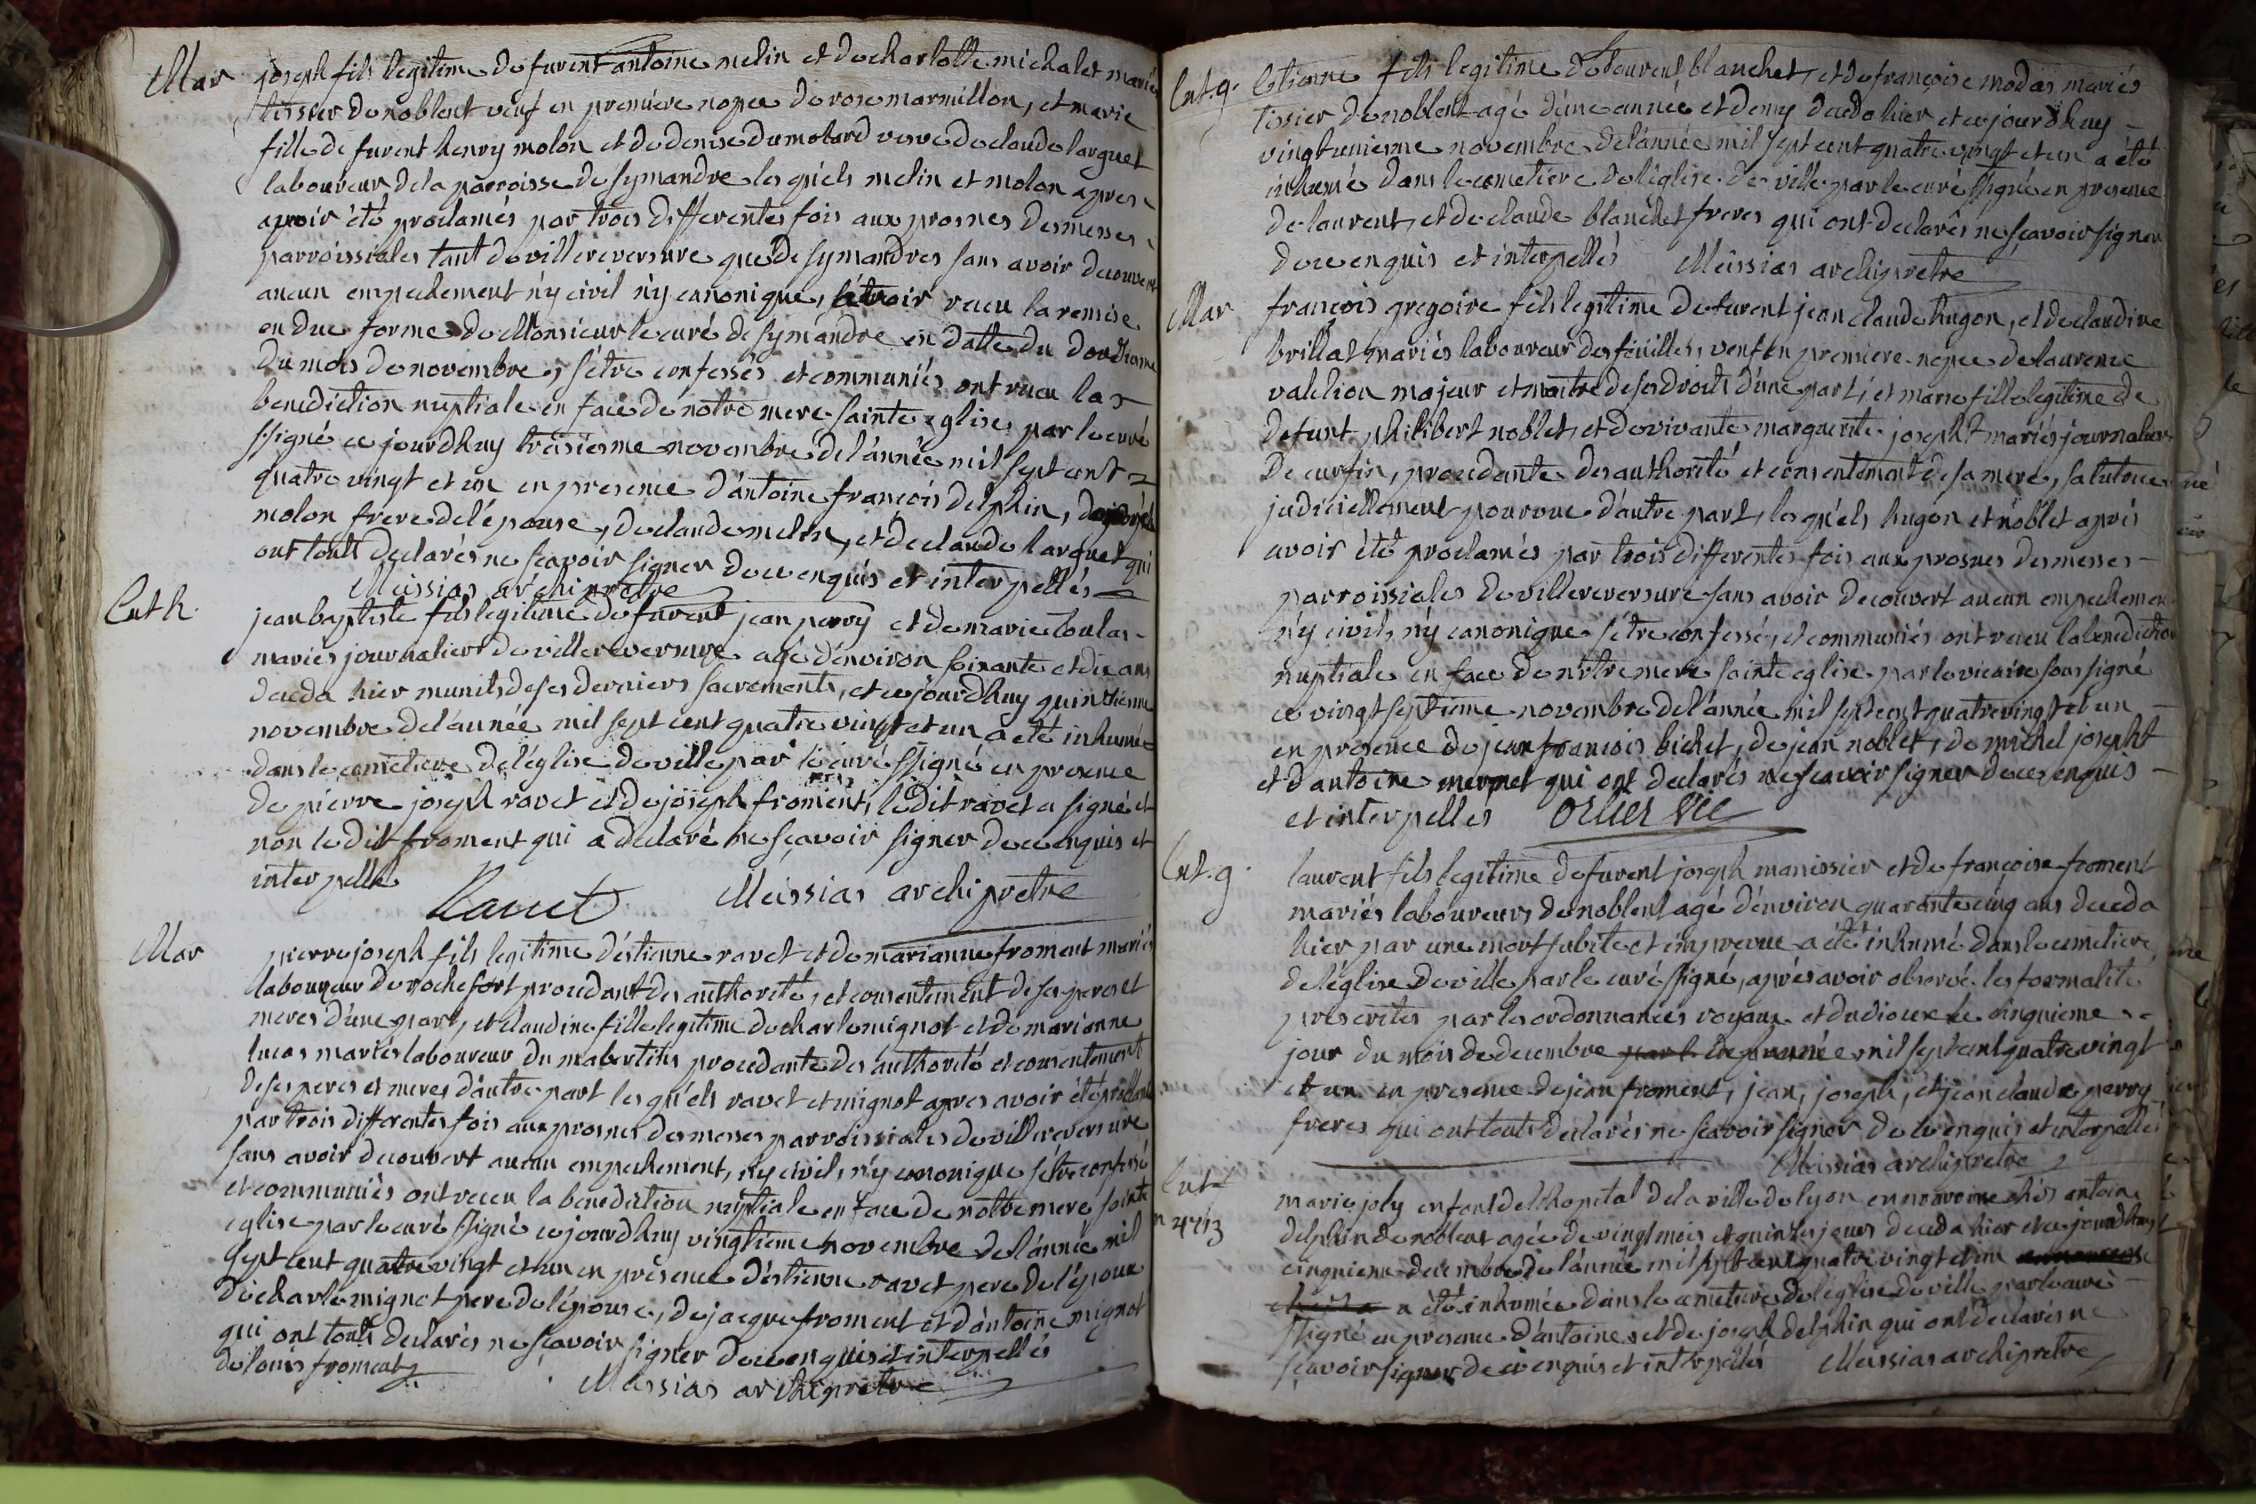 Mar
joseph fils legitime de furent antoine melin et de charlotte michalet mariés
tissier de noblent veuf en premiere nopce de rose marmillon, et marie
fille de furent henry molon et de denise dumolard veuve de claude larguet
laboureur de la parroisse de symandre les quels melin et molon apres
avoir été proclamés par trois differentes fois aux prosnes des messes
parroissiales tant de villereversure que de symandres sans avoir decouvert
aucun empechement n'y civil n'y canonique, et avoir receu la remise
en due forme de Monsieur le curé de symandre en datte du douzieme
du mois de novembre, s'être confessés et communiés ont receu la
benediction nuptiale en face de notre mere sainte eglise par le curé
ssigné ce jourdhuy treisieme novembre de l'année mil sept cent
quatre vingt et un en presence d'antoine françois delphin, de joseph
molon frere de l'épouse, de claude melin, et de claude larguet qui
ont touts declarés ne sçavoir signer de ce enquis et interpellés
Meissias archiprêtre
Ent h.
jean baptiste fils legitime de furent jean perry et de marie Coulas
mariés journalier de villereversure agé d'environ soixante et dix ans
deceda hier munits de ses derniers sacrements, et ce jourdhuy quinzieme
novembre de l'année mil sept cent quatre vingt et un a été inhumé
dans le cemetiere de l'église de ville par le curé ssigné en presence
de pierre joseph ravet et de joseph froment, ledit ravet a signé et
non le dit froment qui a declaré ne sçavoir signer de ce enquis et
interpellé
Ravet Meissias archiprêtre
Mar
pierre joseph fils legitime d'éstienne ravet et de marianne froment mariés
laboureur de rochefort procedant des authorité, et consentement de ses peres et
meres d'une part, et claudine fille legitime de charle mignot et de marianne
lucas mariés laboureur du mabertitis procedante des authorité et consentement
de ses peres et meres d'autre part les quels ravet et mignot apres avoir été proclamés
par trois differentes fois aux prosnes des messes parroissiales de villereversure
sans avoir decouvert aucun empechement, n'y civil n'y canonique s'être confessé
et communiés ont receu la benediction nuptiale en face de notre mere sainte
eglise par le curé ssigné ce jourdhuy vingtieme novembre de l'année mil
sept cent quatre vingt et un en presence d'éstienne ravet pere de l'époux
de charle mignot pere de l'épouse, de jacque froment et d'antoine mignot
qui ont touts declarés ne sçavoir signer de ce enquis et interpellés
de louis froment
Meissias archiprêtre
Ent. g.
Etienne fils legitime de laurent blanchet, et de françoise modas mariés
tissier de noblent agé d'une année et demy deceda hier et ce jourdhuy
vingtunieme novembre de l'année mil sept cent quatre vingt et un a été
inhumé dans le cemetiere de l'église de ville par le curé ssigné en presence
de laurent, et de claude blanchet freres qui ont declarés ne sçavoir signer
de ce enquis et interpellés Meissias archiprêtre
Mar
françois gregoire fils legitime de furent jean claude hugon, et de claudine
brillat mariés laboureur des feuilles, veuf en premiere nopce de laurence
valelion majeur et maitre de ses droits d'une part, et marie fille legitime de
defunt philibert noblet, et de vivante marguerite josepht mariés journaliers
de curfin, procedante des authorité et consentement de sa mere, sa tutrice
judiciellement pourvue d'autre part, les quels hugon et noblet aprés
avoir été proclamés par trois differentes fois aux prosnes des messes
parroissiales de villereversure sans avoir decouvert aucun empechement
n'y civil, n'y canonique s'être confessé, et communiés ont receu la benediction
nuptiale en face de nôtre mere sainte eglise par le vicaire soussigné
ce vingt septieme novembre de l'année mil sept cent quatre vingt et un
en presence de jean françois bichet, de jean noblet, de michel josepht
et d'antoine mermet qui ont declarés ne sçavoir signer de ces enquis
et interpelles Orlier Vic
Ent. g.
laurent fils legitime de furent joseph manissier et de françoise froment
mariés laboureurs de noblent agé d'environ quarante cinq ans deceda
hier par une mort subite et imprevue a été inhumé dans le cemetiere
de l'église de ville par le curé ssigné, aprés avoir observé les formalité
prescrites par les ordonnances royaux et du dioceze le cinquieme
jour du mois de decembre de l'année mil sept cent quatre vingt
et un en presence de jean froment, jean, joseph, et jean claude perry
freres qui ont touts declarés ne sçavoir signer de ce enquis et interpellé
Meissias archiprêtre
Ent
n 4713
marie joly enfant de l'hopital de la ville de lyon en nourrice chés antoine
delphin de noblent agée de vingt mois et quinzes jours deceda hier et ce jourdhuy
cinquieme decembre de l'année mil sept cent quatre vingt et un
a été inhumée dans le cemetiere de l'église de ville par le curé
ssigné en presence d'antoine et de joseph delphin qui ont declarés ne
sçavoir signer de ce enquis et interpellés Meissias archiprêtre